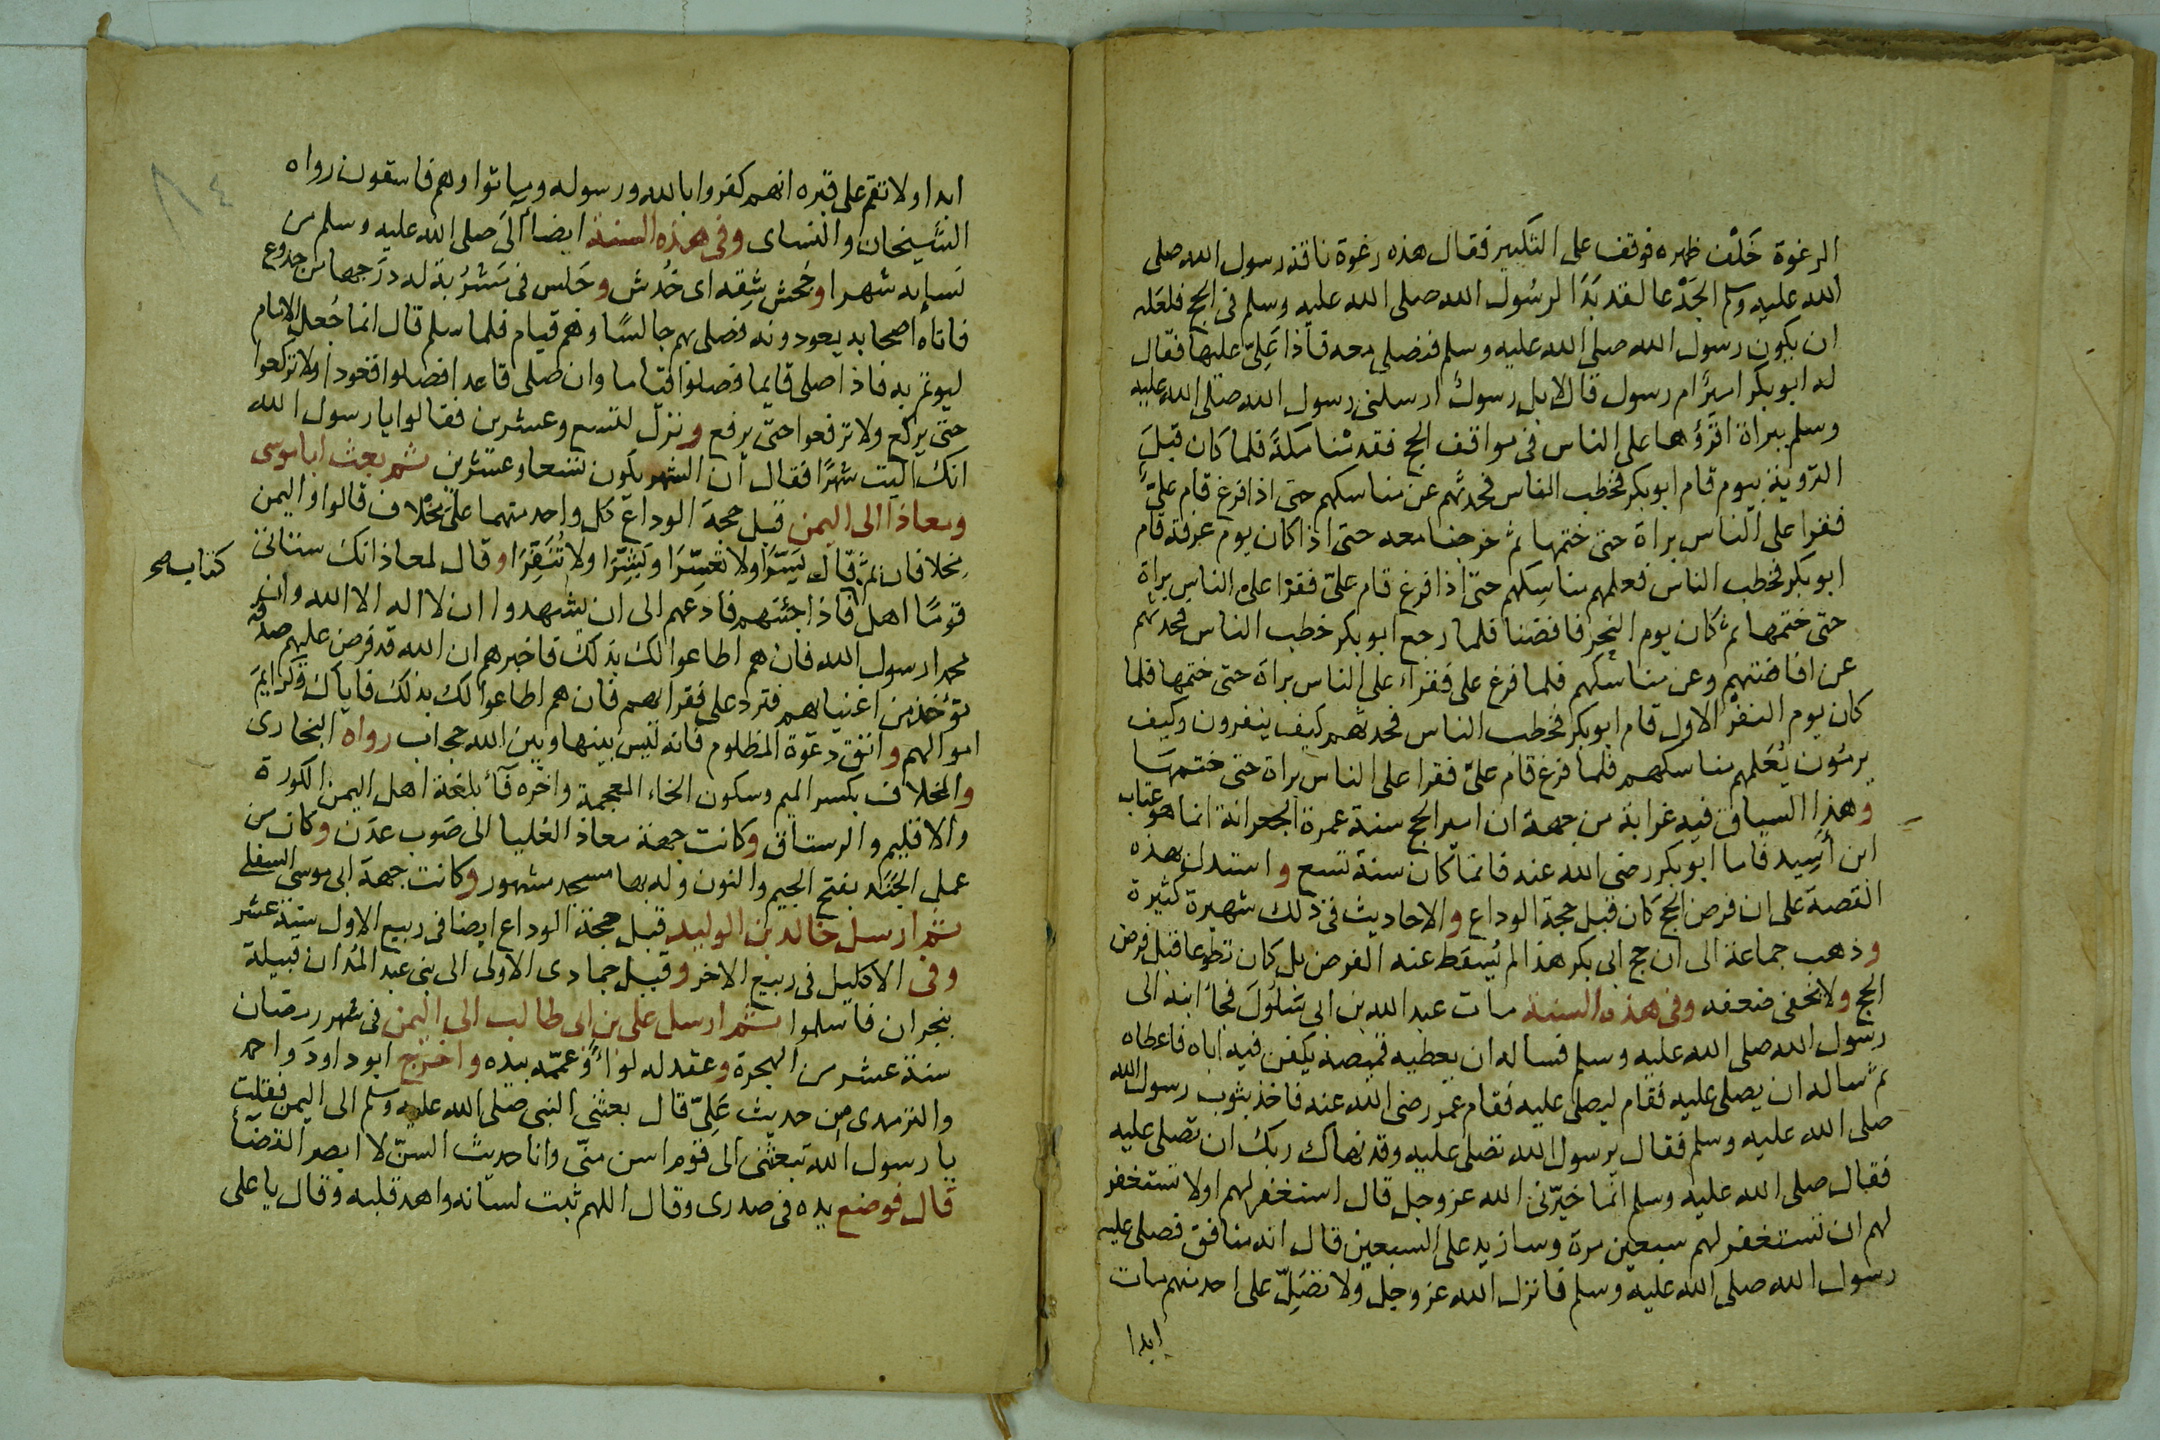 الرغوة خَلْف ظهره فوقف على التكبير فقال هذه رغوة ناقة رسول الله صلى
الله عليه وسلم الجَدْعا لقد بَدَا لرسُول الله صلى الله عليه وسلم في الحج فلعله
ان يكون رسول الله صلى الله عليه وسلم فنصلى معه فاذا عَلِىّ عليها فقال
له ابو بكر اميرٌ ام رسول قال لا بل رسولٌ ارسلنى رسول الله صلى الله عليه
وسلم ببراة اقرؤها على الناس في مواقف الحج فقدمْنا مكةَ فلما كان قبلَ
التروية بيوم قام ابو بكر فخطب الناس فحدثهم عن مناسكهم حتى اذا فرغ قام علىٌّ
فقرا على الناس براة حتى ختمها ثم خرجنا معه حتى اذا كان يوم عرفة قام
ابو بكر فخطب الناس فعلمهم مناسكهم حتى اذا فرغ قام علىّ فقرا على الناس براة
حتى ختمها ثم كان يوم النحر فافضنا فلما رجع ابو بكر خطب الناس فحدثهم
عن افاضتهم وعن مناسكهم فلما فرغ على فقراء على الناس براة حتى ختمها فلما
كان يوم النفر الاول قام ابو بكر فخطب الناس فحدثهم كيف ينفرون وكيف
يرمُون يُعَلمهم مناسكهم فلما فرغ قام علىّ فقرا على الناس براة حتى ختمها
وهذا السياق فيه غرابة من جهة ان امير الحج سنة عمرة الجعرانة انما هو عتاب
ابن أَسِيد فاما ابو بكر رضى الله عنه فانما كان سنة تسع واستدل بهذه
القصة على ان فرض الحج كان قبل حجة الوداع والاحاديث في ذلك شهيرة كثيرة
وذهب جماعة الى ان حج ابى بكر هذا لم يُسقط عنه الفرض بل كان تطوعا قبل فرض
الحج ولا يخفى ضعفه وفي هذه السنة مات عبد الله بن ابى سَلُولَ فجاء ابنه الى
رسول الله صلى الله عليه وسلم فساله ان يعطيه قميصه يكفن فيه اباه فاعطاه
ثم ساله ان يصلى عليه فقام ليصلى عليه فقام عمر رضى الله عنه فاخذ بثوب رسول الله
صلى الله عليه وسلم فقال يرسول الله تصلى عليه وقد نهاك ربك ان تصلى عليه
فقال صلى الله عليه وسلم انما خيّرنى الله عز وجل قال استغفر لهم او لا تستغفر
لهم ان تستغفر لهم سبعين مرة وسازيد على السبعين قال انه منافق فصلى عليه
رسول الله صلى الله عليه وسلم فانزل الله عز وجل ولا تصَلِّ على احد منهم مات
ابدا
٨٤
ابدا ولا تقم على قبره انهم كفروا بالله ورسوله وماتوا وهم فاسقون رواه
الشيخان والنساى وفي هذه السنة ايضا آلَى صلى الله عليه وسلم من
نسايه شهرا وجُحش شِقه اى خُدش وجَلس في مَشْرُبة له درَجها من جذوع
فاتاه اصحابه يعودونه فصلى بهم جالسًا وهم قيام فلما سلم قال انما جُعل الامام
ليوتم به فاذا صلى قايما فصلوا قياما وان صلى قاعدا فصلوا قعودا ولا تركعوا
حتى يركع ولا ترفعوا حتى يرفع ونزل لتسع وعشرين فقالوا يا رسول الله
انك اليت شهرًا فقال ان الشهر يكون تسعا وعشرين ثم بعث ابا موسى
ومعاذا الى اليمن قبل حجة الوداع كل واحد منهما على مخْلاف قالوا واليمن
مِخلافان ثم قال يَسّرَا ولا تعسّرَا وبَشّرَا ولا تُنَفّرَا وقال لمعاذ انك ستاتى
قومًا اهل فاذا جئتهم فادعهم الى ان يشهدوا ان لا اله الا الله وان
كتاب صح
محمدا رسول الله فان هم اطاعوا لك بذلك فاخبرهم ان الله قد فرض عليهم صدقة
تؤخذ من اغنيايهم فترد على فقرايهم فان هم اطاعوا لك بذلك فاياك وكرايم
اموالهم واتق دعوة المظلوم فانه ليس بينها وبين الله حجاب رواه البخارى
والمخلاف بكسر الميم وسكون الخاء المعجمة واخره فآء بلغة اهل اليمن الكورة
والاقليم والرستاق وكانت جهة معاذ العليا الى صَوب عدَن وكان من
عمله الجَنَد بفتح الجيم والنون وله بها مسجد مشهور وكانت جهة ابى موسى السفلى
ثم ارسل خالد بن الوليد قبل حجة الوداع ايضا في ربيع الاول سنة عشر
وفي الاكليل في ربيع الاخر وقيل جمادى الاولى الى بنى عبد المُدان قبيلة
بنجران فاسلموا ثم ارسل على بن ابى طالب الى اليمن في شهر رمضان
سنة عشر من الهجرة وعقد له لواءً وعمّمه بيده واخرج ابو داود واحمد
والترمذى من حديث عَلِىّ قال بعثنى النبى صلى الله عليه وسلم الى اليمن فقلت
يا رسول الله تبعثنى الى قوم اسن منّى وانا حديث السنّ لا ابصر القضاء
قال فوضع يده في صدرى وقال اللهم ثبت لسانه واهد قلبه وقال يا على